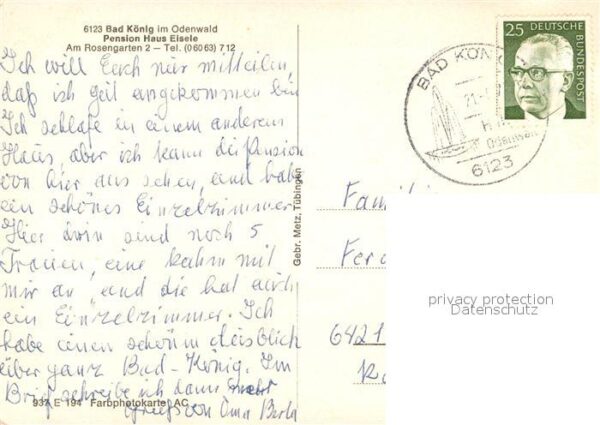 6123 Bad König im Odenwald
Pension Haus Eisele
Am Rosengarten 2 – Tel. (06063) 712
Ich will Euch nur mitteilen
daß ich gut angekommen bin
Ich schlafe in einem anderen
Haus, aber ich kann die Pension
von hier aus sehen, und habe
ein schönes Einzelzimmer
Hier drin sind noch 5
Frauen, eine kahm mit
mir an, und die hat auch
ein Einzelzimmer. Ich
habe einen schönen Ausblick
über ganz Bad-König. Im
Brief schreibe ich dann mehr
Grüße von Oma Berta
937 E 194 Farbphotokarte AC
Gebr. Metz, Tübingen
25 DEUTSCHE
BUNDESPOST
BAD KÖNIG
21.
Odenwald
6123
Famili
Fer
6421
privacy protection
Datenschutz